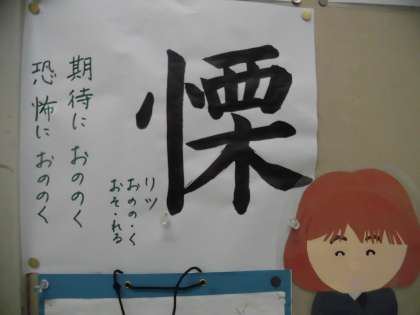 慄
リツ
おのの・く
おそ・れる
期待に おののく
恐怖に おののく